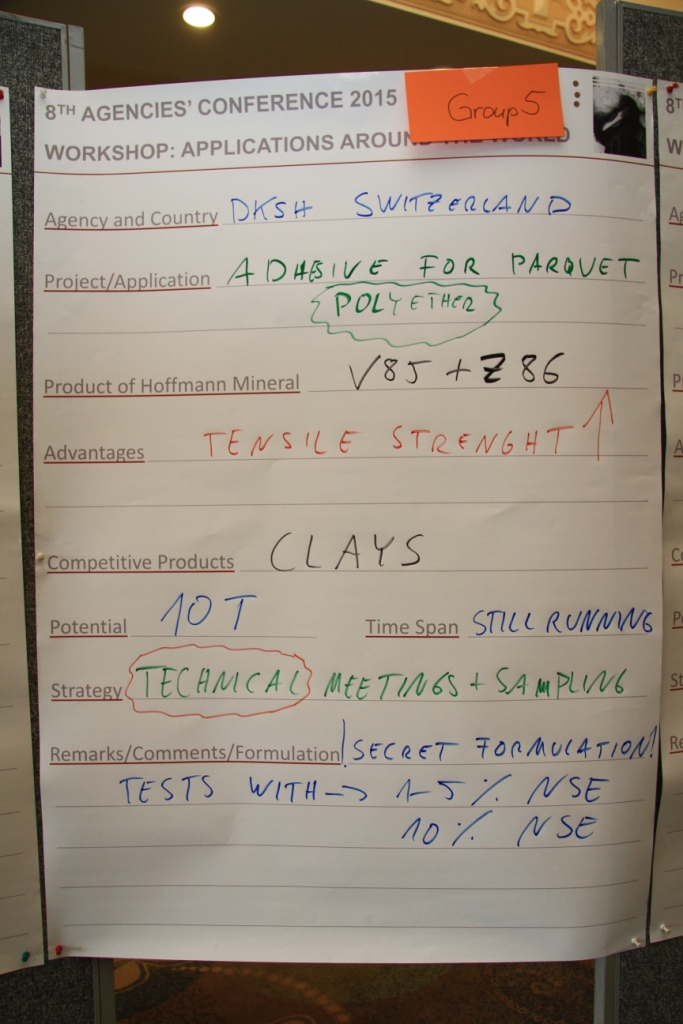 8TH AGENCIES' CONFERENCE 2015
Group 5
WORKSHOP: APPLICATIONS AROUND THE WORLD
Agency and Country DKSH SWITZERLAND
Project/Application ADHESIVE FOR PARQUET
POLYETHER
Product of Hoffmann Mineral V85 + Z86
Advantages TENSILE STRENGHT ↑
Competitive Products CLAYS
Potential 10T Time Span STILL RUNNING
Strategy TECHNICAL MEETINGS + SAMPLING
Remarks/Comments/Formulation ! SECRET FORMULATION!
TESTS WITH → 1-5% NSE
10% NSE